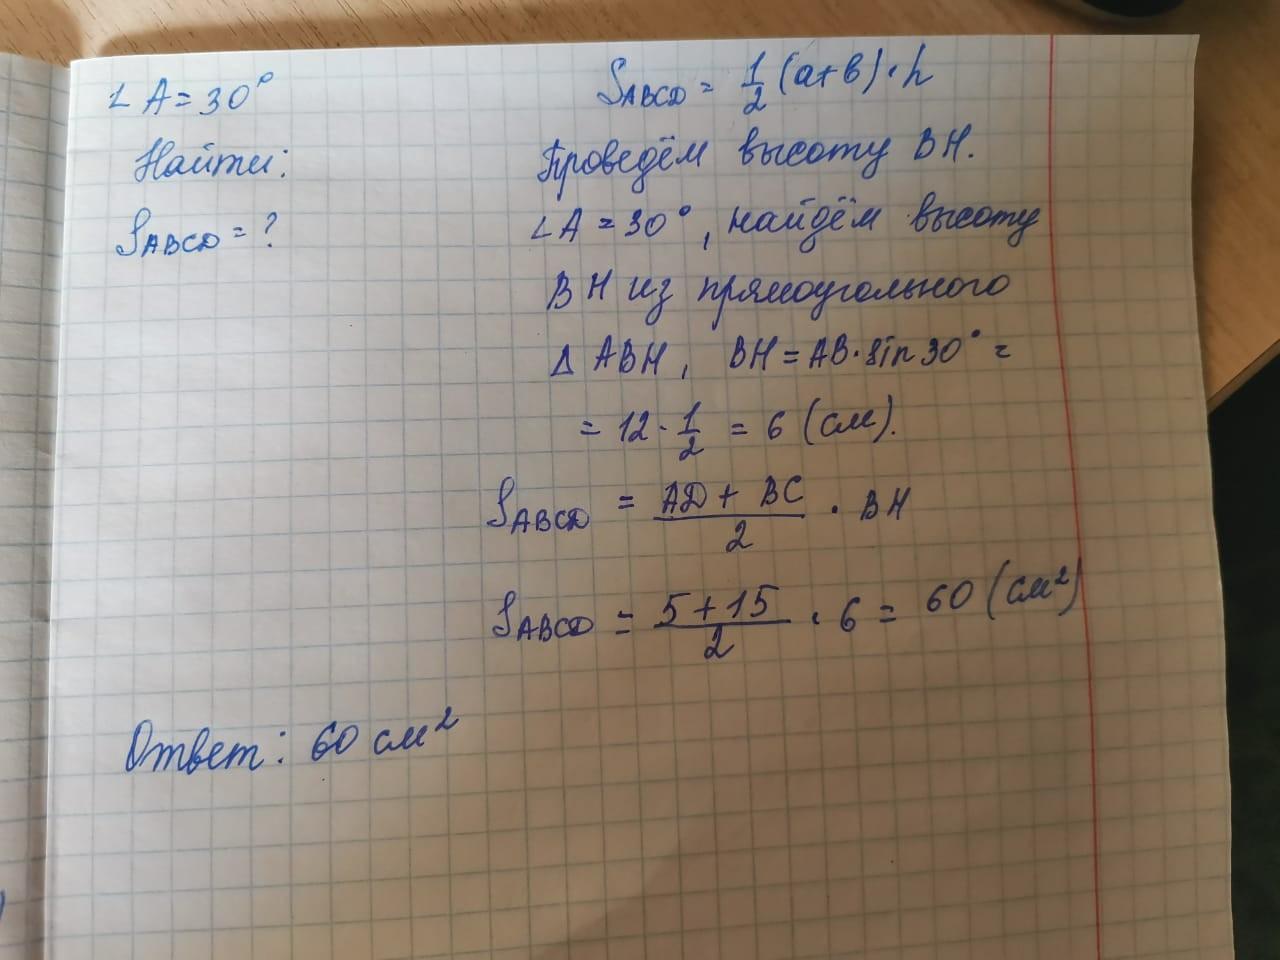 ∠A = 30°
Найти:
S_ABCD = ?
S_ABCD = 1/2 (a+в)·h
Проведём высоту BH.
∠A = 30°, найдём высоту
BH из прямоугольного
Δ ABH, BH = AB·sin 30° =
= 12 · 1/2 = 6 (см).
S_ABCD = (AD + BC)/2 · BH
S_ABCD = (5 + 15)/2 · 6 = 60 (см²)
Ответ: 60 см²